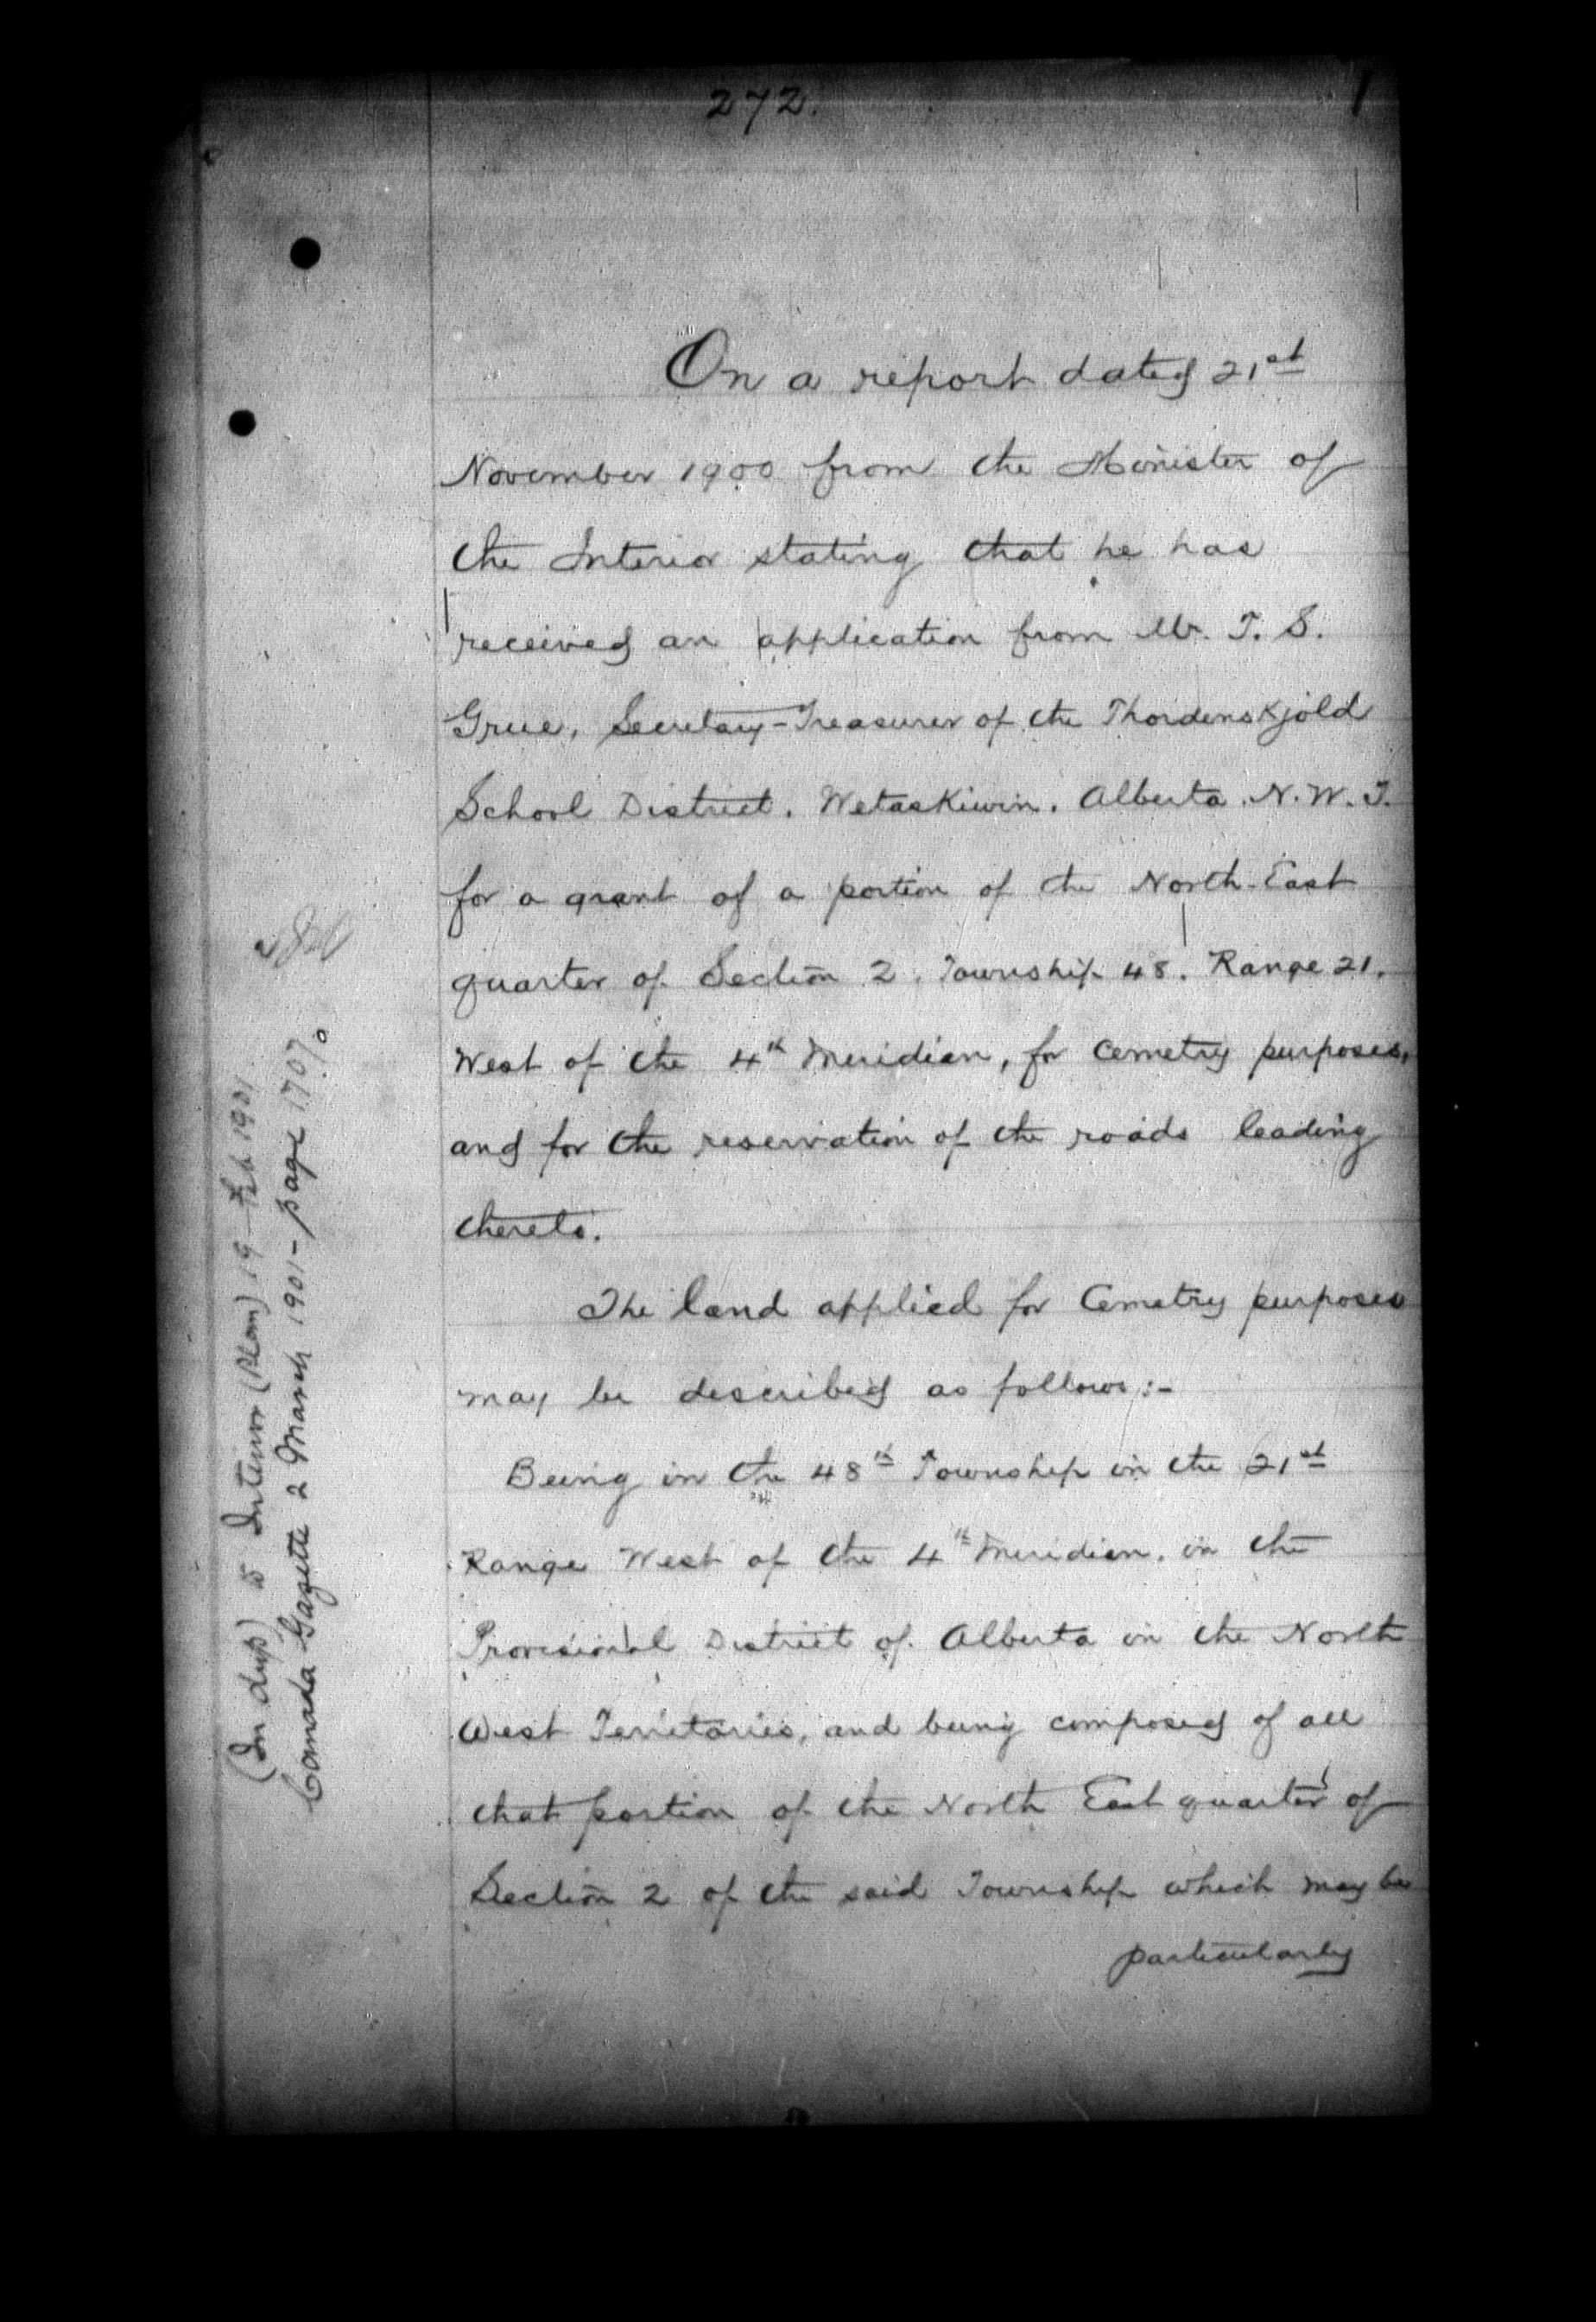 272.
On a report dated 21st
November 1900 from the Minister of
the Interior stating that he has
received an application from Mr. T. S.
Grue, Secretary-Treasurer of the Thordenskjold
School District. Wetaskiwin. Alberta. N. W. T.
for a grant of a portion of the North-East
quarter of Section 2. Township 48. Range 21.
West of the 4th Meridian, for Cemetry purposes,
and for the reservation of the roads leading
thereto.
The land applied for Cemetry purposes
may be described as follows:-
Being in the 48th Township in the 21st
Range West of the 4th Meridian. in the
Provisional District of Alberta in the North
West Territories, and being composed of all
that portion of the North East quarter of
Section 2 of the said Township which may be
particularly
(In dup) to Interior (Plan) 19 Feb 1901
Canada Gazette 2 March 1901 - page 1707.